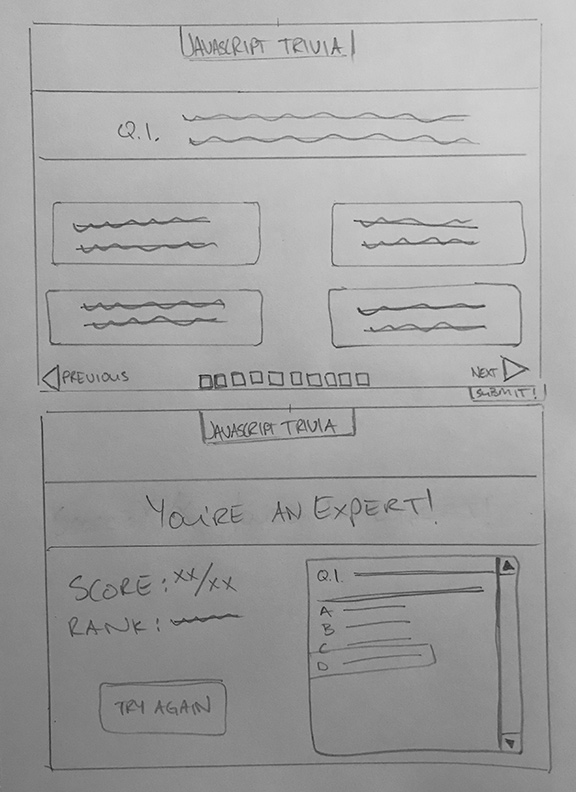 JAVASCRIPT TRIVIA
Q.1.
PREVIOUS
NEXT
SUBMIT!
JAVASCRIPT TRIVIA
YOU'RE AN EXPERT!
SCORE: XX/XX
RANK:
Q.1.
A
B
C
D
TRY AGAIN